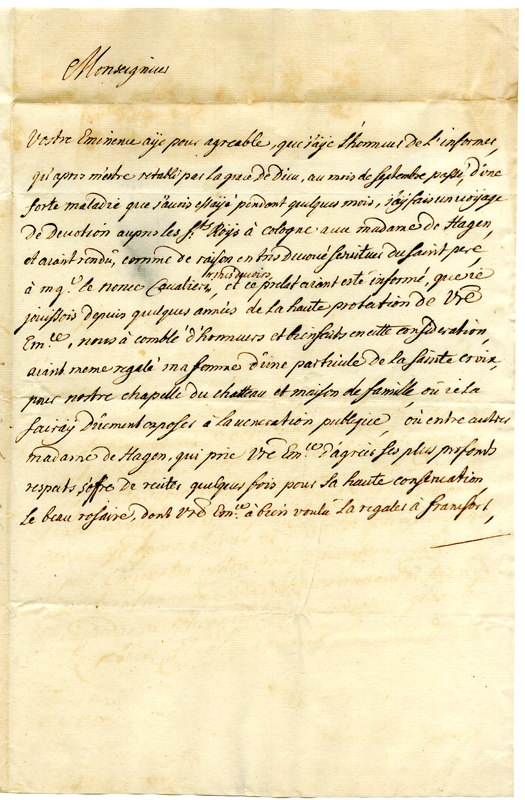 Monseigneur
Vostre Eminence aÿe pour agreable, que j'aÿe l'honneur de L'informer,
qu'apres m'estre retabli par la grace de Dieu, au mois de septembre passé, d'une
forte maladie que j'avois essaÿé pendent quelques mois, j'aÿ fais un voÿage
de Devotion aupres les S.ts Roÿs à cologne avec madame de Hagen,
et aÿant rendû, comme de raison en tres devoué serviteur du saint pere
mes devoirs
à mg.r le nonce Cavalieri, et ce prelat aÿant esté informé, que je
jouissois depuis quelques années de la haute protection de Vre
Em.ce, nous à comblé d'honneurs et bienfaits en cette consideration,
aÿant meme regalé ma femme d'une particule de la sainte croix
pour nostre chapelle du chatteau et maison de famille, où je la
fairaÿ dûement exposer à la veneration publique, où entre autres
madame de Hagen, qui prie Vre Em.ce d'agreer ses plus profonds
respects s'offre de reciter quelques fois pour sa haute conservation
le beau rosaire, dont Vre Em.ce à bien voulû la regaler à francfort,